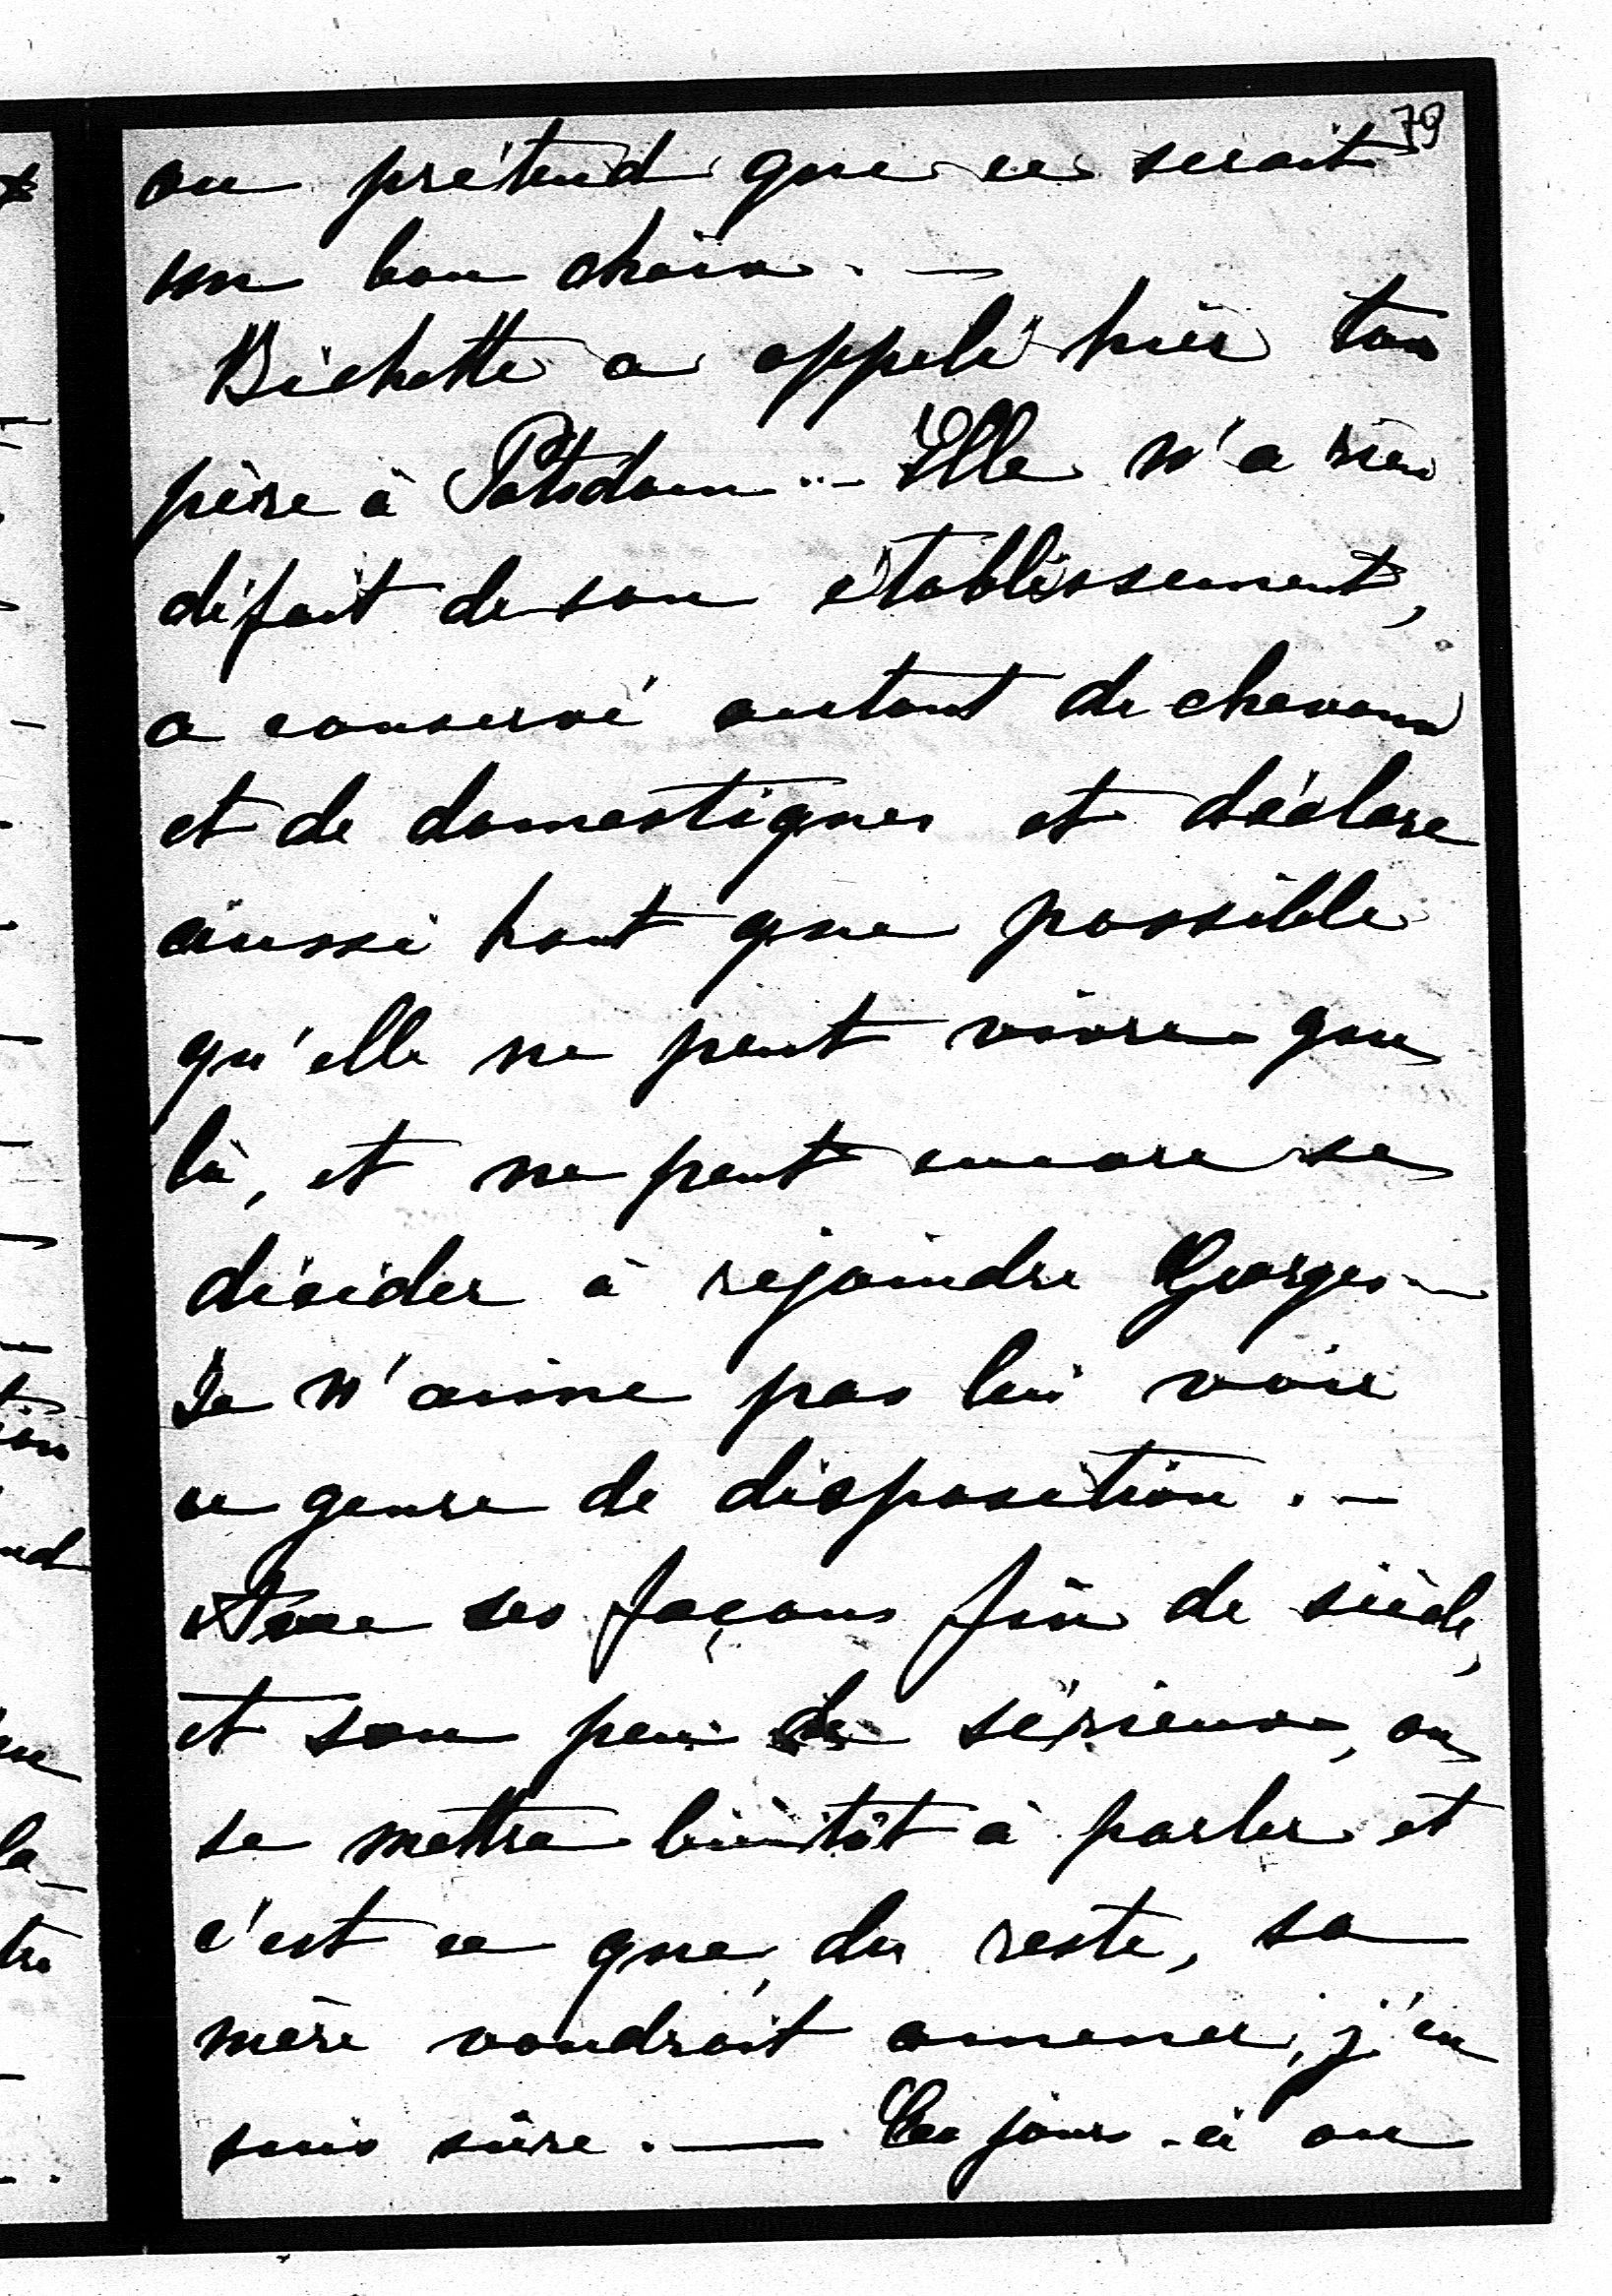 79
on prétend que ce serait
un bon choix. —
Bichette a appelé hier ton
père à Potsdam .. — Elle n'a rien
défait de son établissement,
a conservé autant de chevaux
et de domestiques et déclare
aussi haut que possible
qu'elle ne peut vivre que
là, et ne peut encore se
décider à rejoindre Georges —
Je n'aime pas lui voir
ce genre de disposition. —
Avec ses façons fin de siècle,
et son peu de sérieux, on
se mettra bientôt à parler et
c'est ce que, du reste, sa
mère voudrait amener, j'en
suis sûre. — Ces jours-ci on